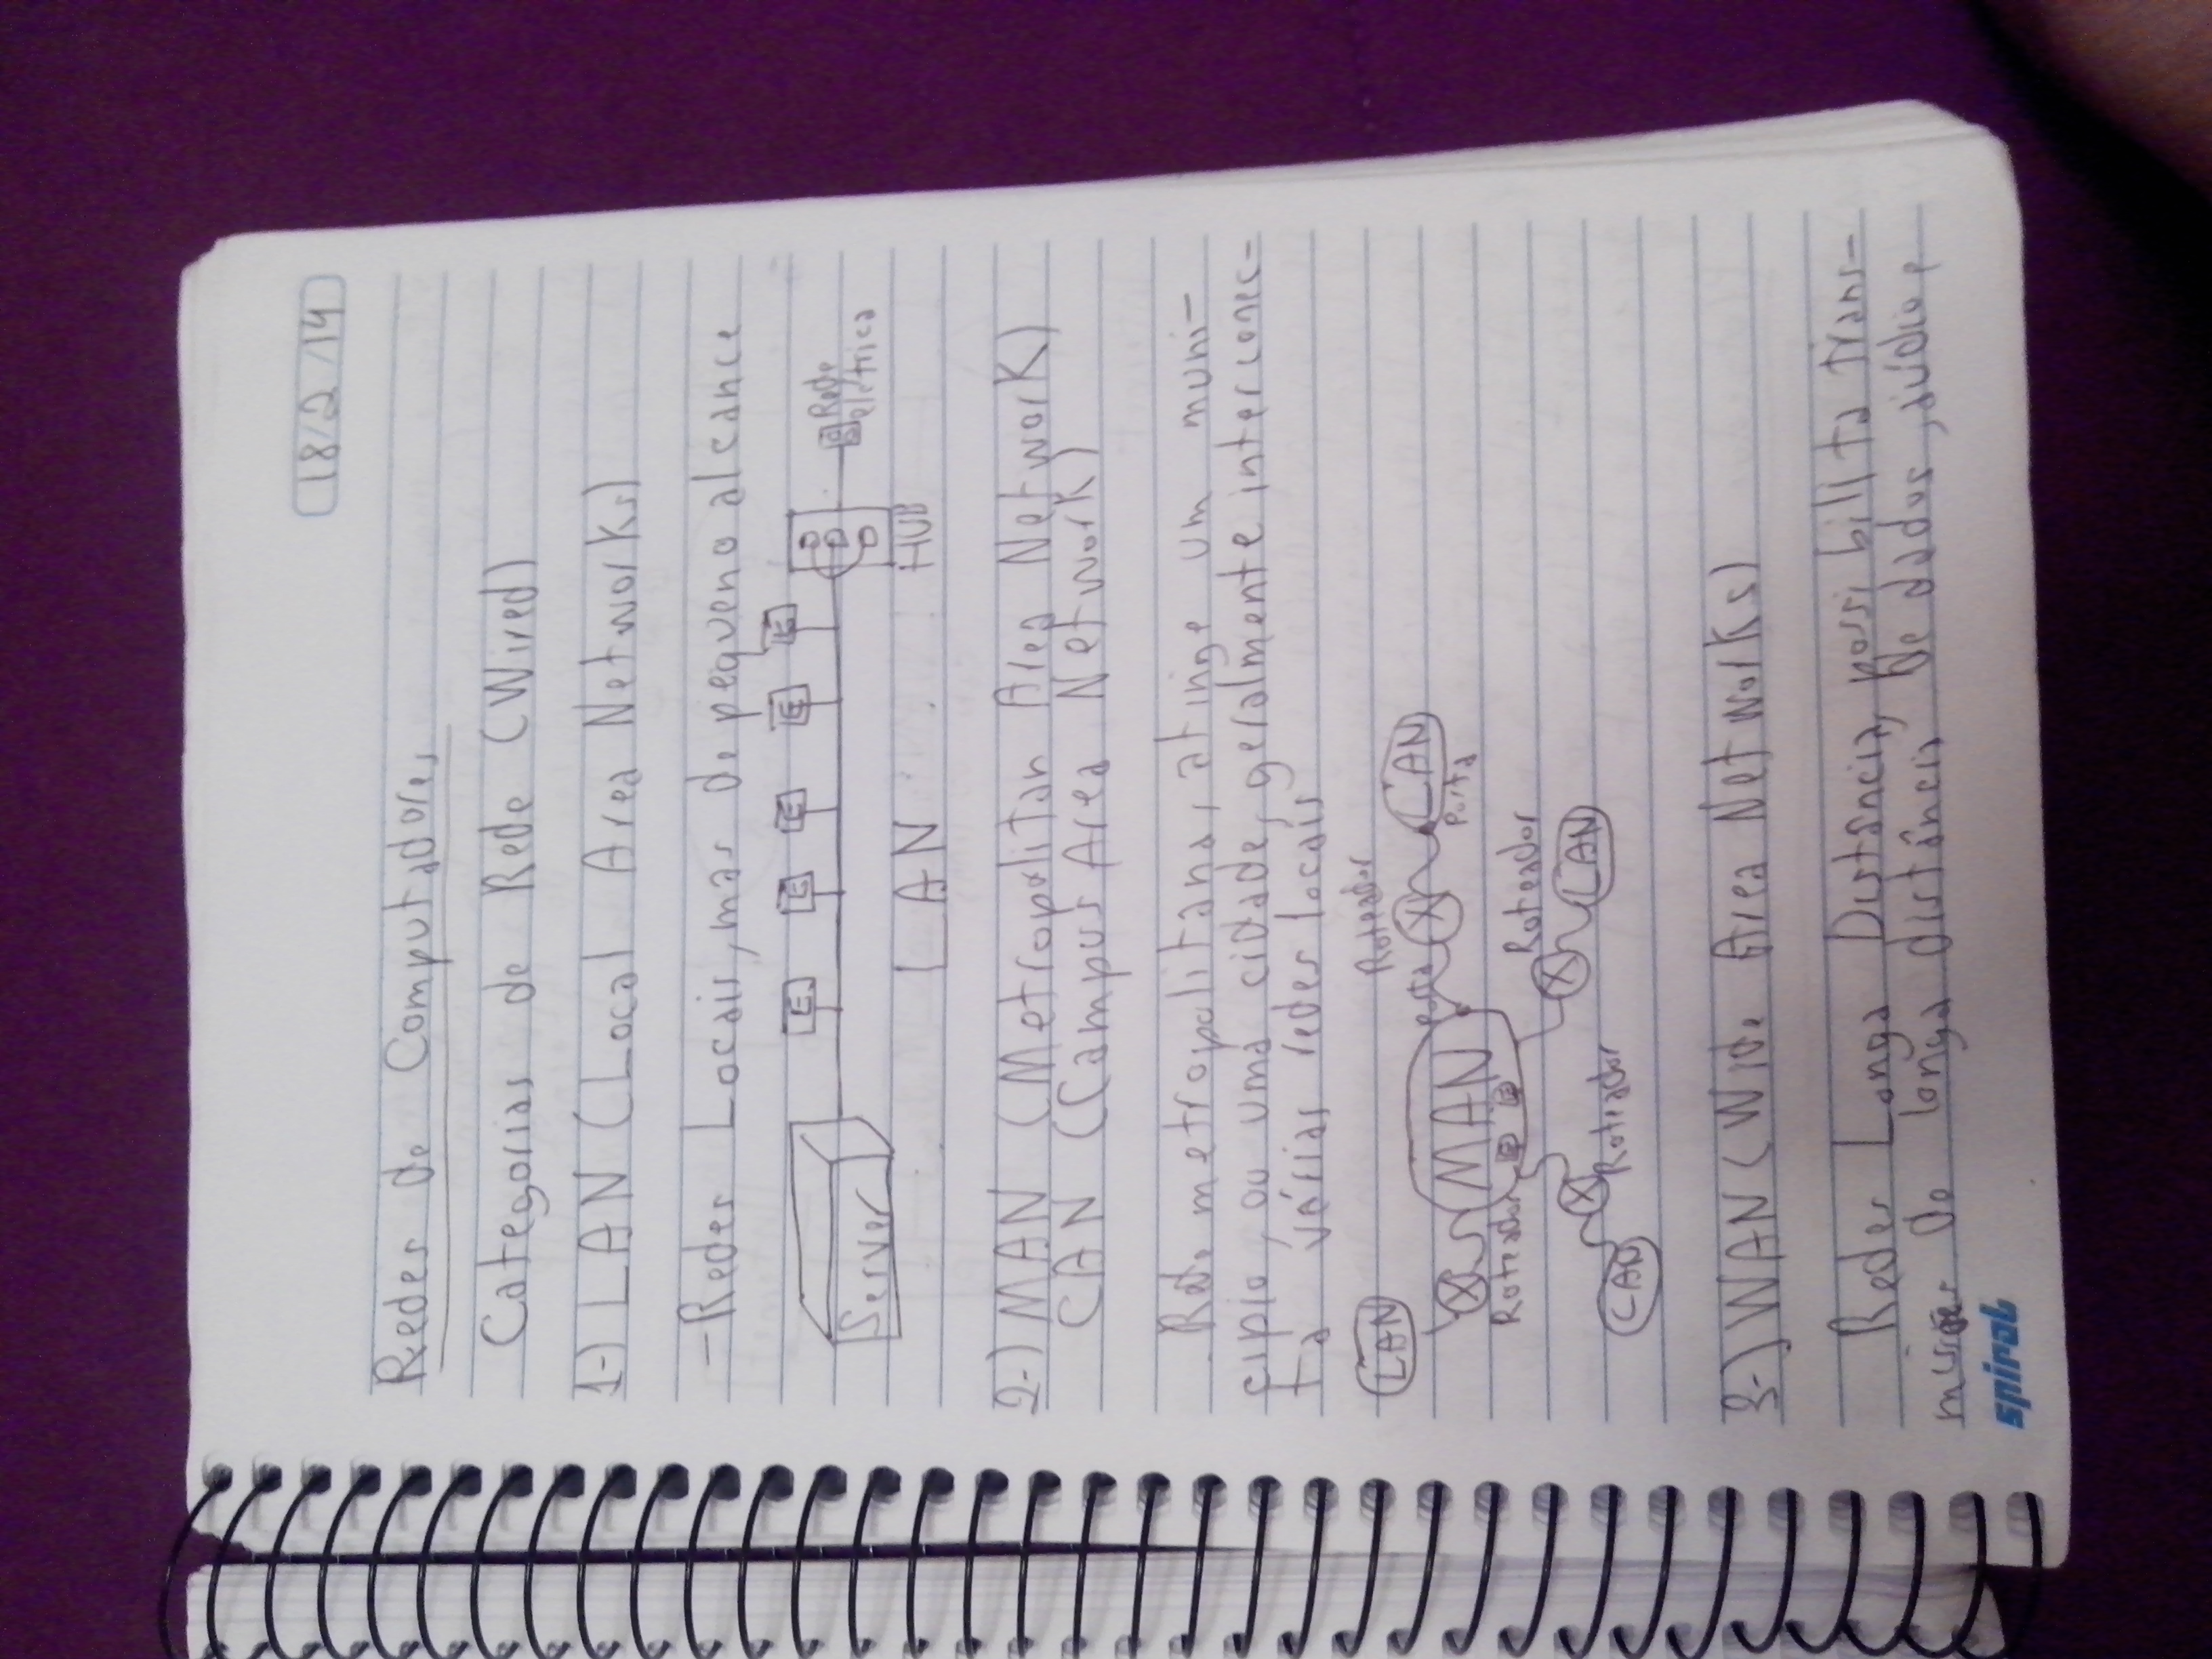 18/2/14
Redes de Computadores
Categorias de Rede (Wired)
1-) LAN (Local Area Networks)
- Redes Locais, mas de pequeno alcance
E E E E E
Server
Rede
elétrica
LAN
HUB
2-) MAN (Metropolitan Area Network)
CAN (Campus Area Network)
Rede metropolitana, atinge um muni-
cipio, ou uma cidade, geralmente interconec-
ta várias redes locais
LAN
Roteador
porta
CAN
Porta
MAN
Roteador
E E
Roteador
LAN
Roteador
CAN
3-) WAN (Wide Area Networks)
Redes Longa Distância, possibillta trans-
missões de longa distância de dados, áudio,
spiral